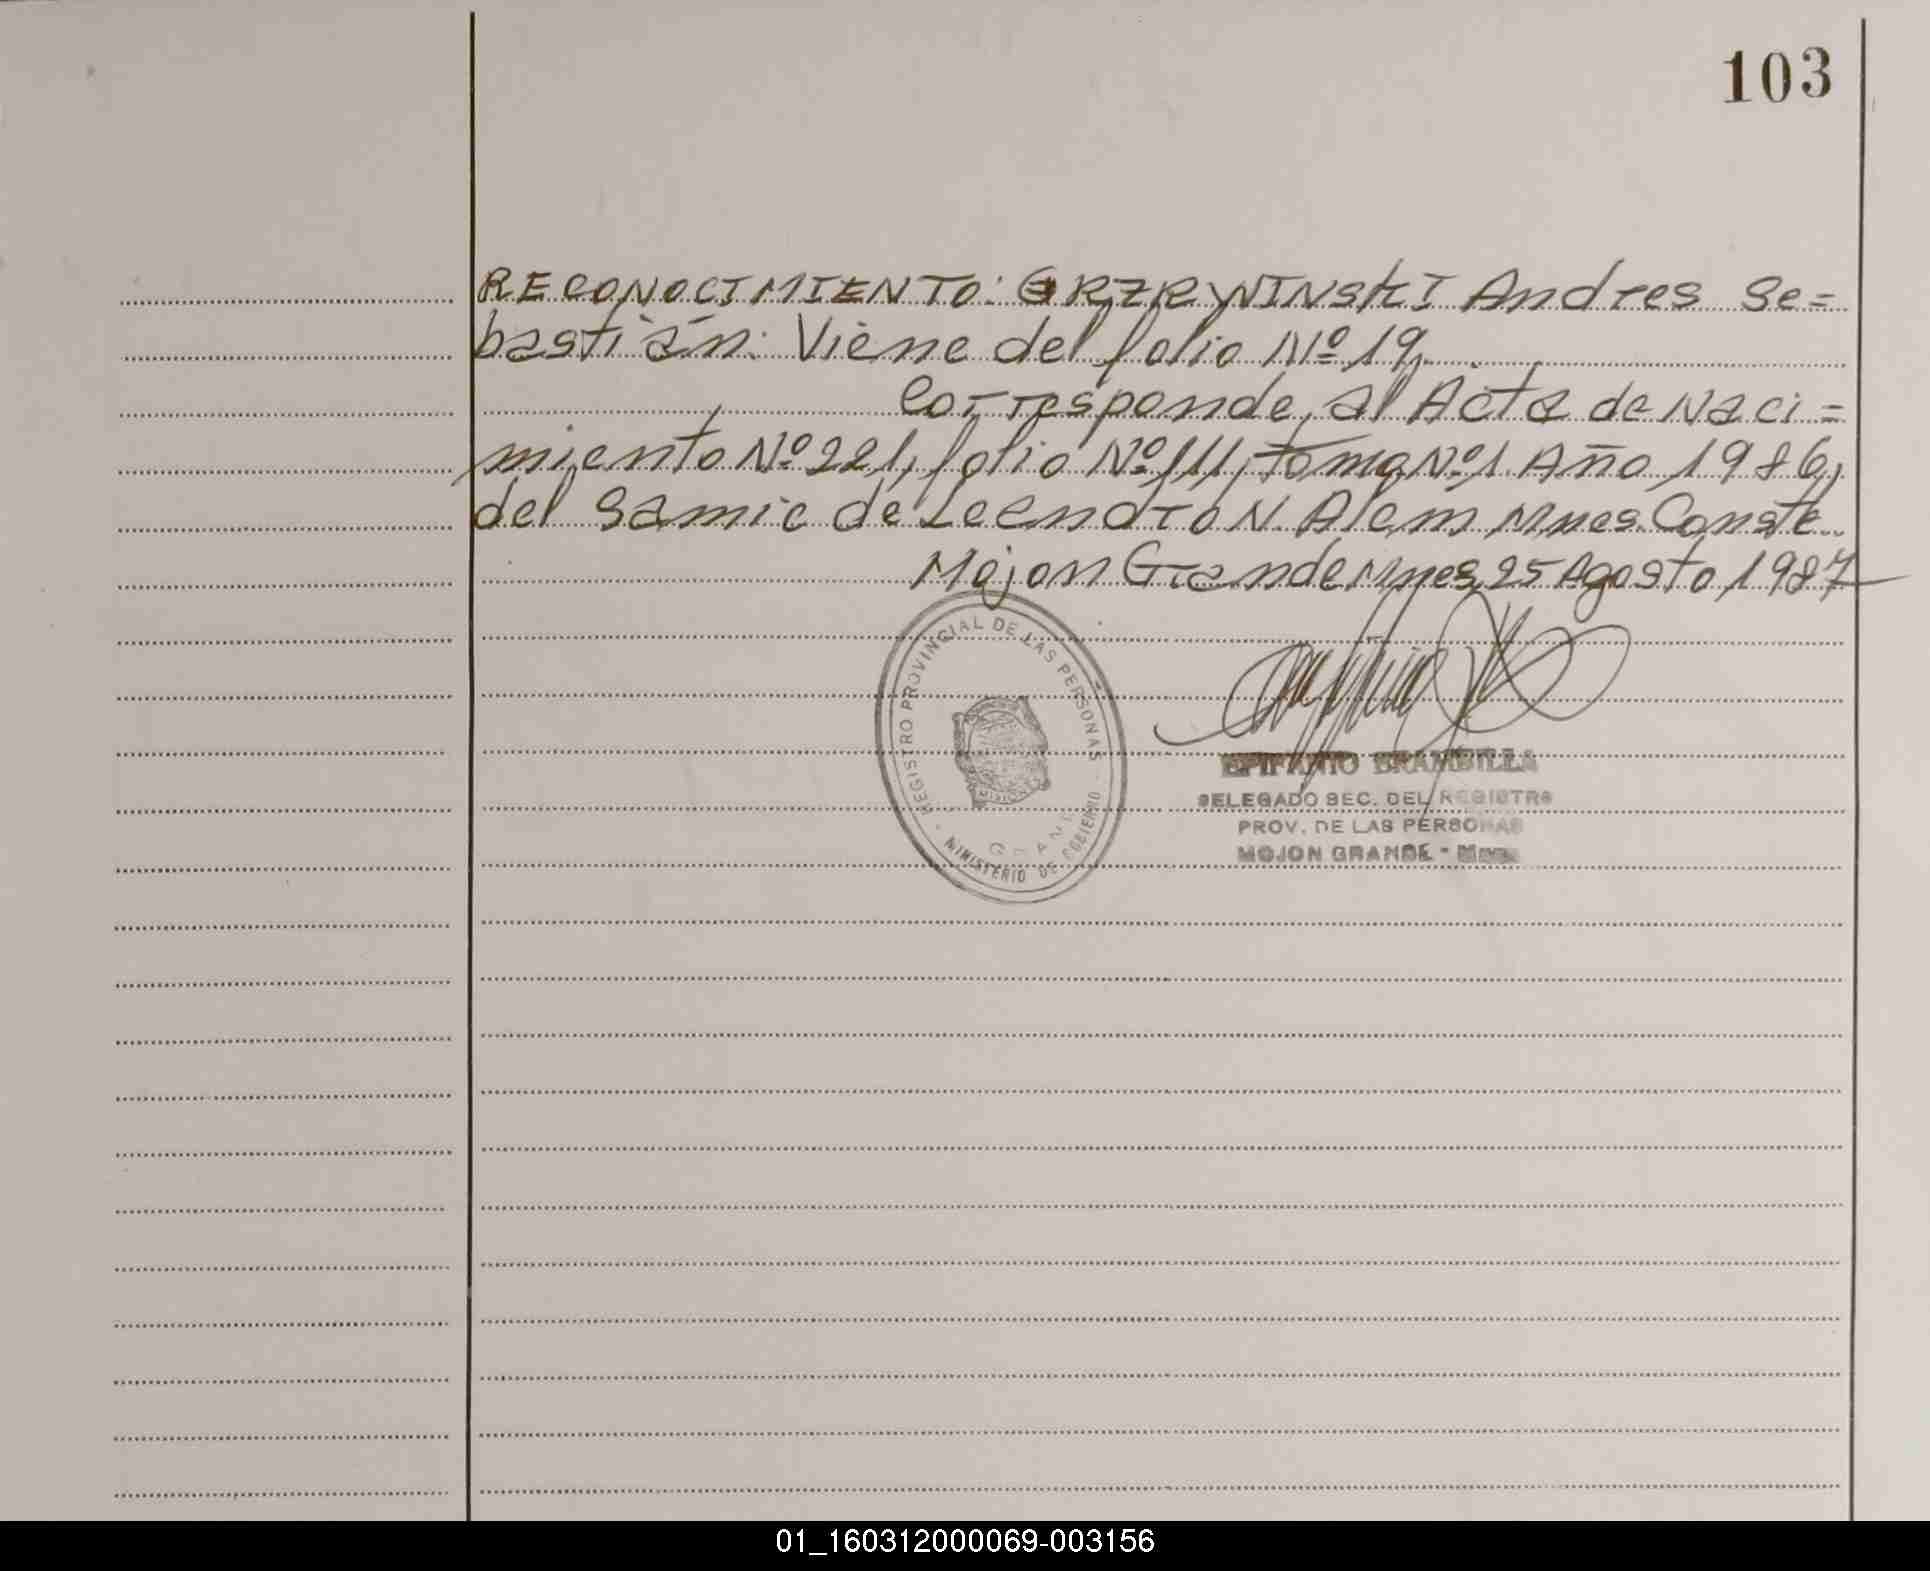 103
RECONOCIMIENTO: GRZRYWINSKI Andres Se=
bastián: Viene del folio Nº 19,
Corresponde, al Acta de Naci=
miento Nº 221, folio Nº 111, tomo Nº 1. Año 1986,
del Samic de Leendro N. Alem Mnes. Conste.
Mojon Grande Mnes, 25 Agosto, 1987
REGISTRO PROVINCIAL DE LAS PERSONAS
MINISTERIO DE GOBIERNO
EPIFANIO BRAMBILLA
DELEGADO SEC. DEL REGISTRO
PROV. DE LAS PERSONAS
MOJON GRANDE - Mnes.
01_160312000069-003156